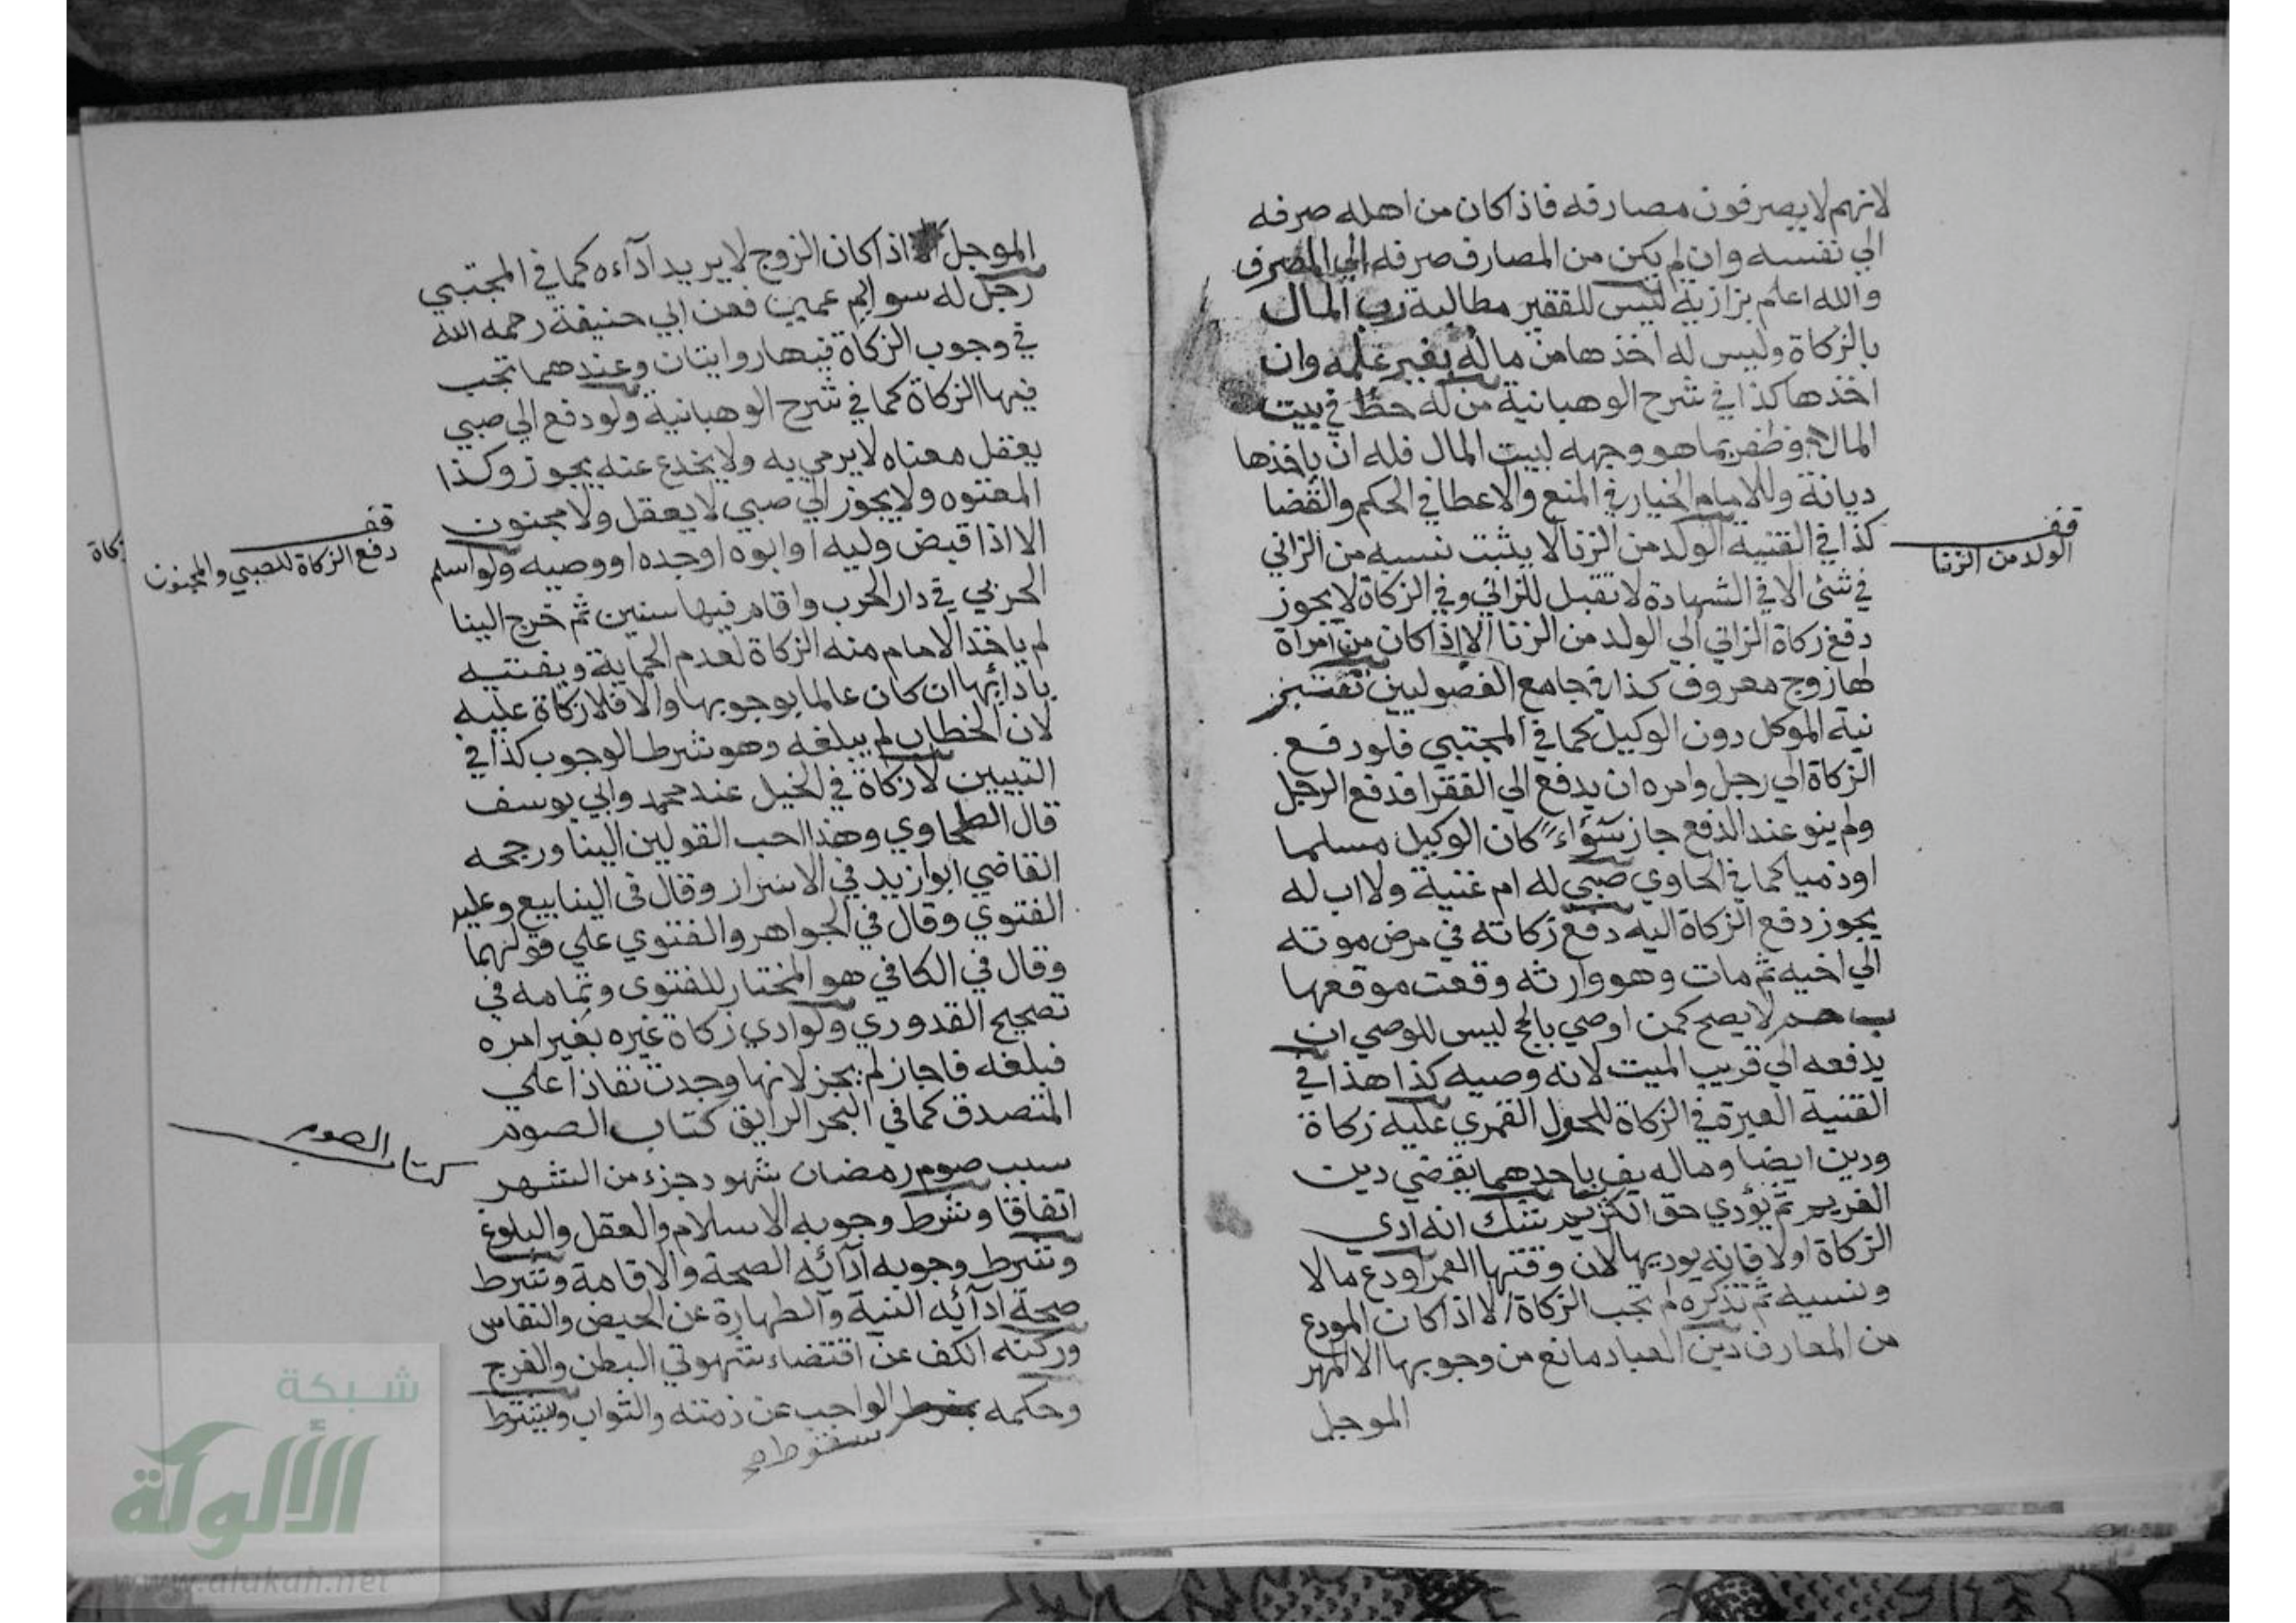 لانهم لا يصرفون مصارفه فاذا كان من اهله صرفه
الي نفسه وان لم يكن من المصارف صرفه الي المصرف
والله اعلم بزازية ليس للفقير مطالبة رب المال
بالزكاة وليس له اخذها من ماله بغير علمه وان
اخذها كذا في شرح الوهبانية من له حظ في بيت
المال وظفر بما هو وجهه لبيت المال فله ان ياخذها
ديانة وللامام الخيار في المنع والاعطا في الحكم والقضا
كذا في القنية الولد من الزنا لا يثبت نسبه من الزاني
في شئ الا في الشهادة لا تقبل للزاني وفي الزكاة لا يجوز
دفع زكاة الزاني الي الولد من الزنا الا اذا كان من امراة
لها زوج معروف كذا في جامع الفصولين تعتبر
نية الموكل دون الوكيل كما في المجتبي فلو دفع
الزكاة الي رجل وامره ان يدفع الي الفقرا فدفع الرجل
ولم ينو عند الدفع جاز سواء كان الوكيل مسلما
او ذميا كما في الحاوي صبي له ام غنية ولا اب له
يجوز دفع الزكاة اليه دفع زكاته في مرض موته
الي اخيه ثم مات وهو وارثه وقعت موقعها
لا يصح كمن اوصي بالحج ليس للوصي ان
يدفعه الي قريب الميت لانه وصيه كذا هذا في
القنية العبرة في الزكاة للحول القمري عليه زكاة
ودين ايضا وماله يفي باحدهما يقضي دين
الغريم ثم يؤدي حق الكريم شك انه ادي
الزكاة اولا فانه يوديها لان وقتها العمر اودع مالا
ونسيه ثم تذكره لم تجب الزكاة الا اذا كان المودع
من المعارف دين العباد مانع من وجوبها الا المهر
الموجل
قف
الولد من الزنا
الموجل اذا كان الزوج لا يريد آداءه كما في المجتبي
رجل له سوايم عمي فعن ابي حنيفة رحمه الله
في وجوب الزكاة فيها روايتان وعندهما تجب
فيها الزكاة كما في شرح الوهبانية ولو دفع الي صبي
يعقل معناه لا يرمي به ولا يخدع عنه يجوز وكذا
المعتوه ولا يجوز الي صبي لا يعقل ولا مجنون
الا اذا قبض وليه او ابوه او جده او وصيه ولو اسلم
الحربي في دار الحرب واقام فيها سنين ثم خرج الينا
لم ياخذ الامام منه الزكاة لعدم الحماية ويفتيه
بادائها ان كان عالما بوجوبها والا فلا زكاة عليه
لان الخطاب لم يبلغه وهو شرط الوجوب كذا في
التبيين لا زكاة في الخيل عند محمد وابي يوسف
قال الطحاوي وهذا احب القولين الينا ورجحه
القاضي ابوا زيد في الاسرار وقال في الينابيع وعليه
الفتوي وقال في الجواهر والفتوي علي قولهما
وقال في الكافي هو المختار للفتوي وتمامه في
تصحيح القدوري ولو ادي زكاة غيره بغير امره
فبلغه فاجاز لم يجز لانها وجدت نفاذا علي
المتصدق كما في البحر الرايق كتاب الصوم
سبب صوم رمضان شهود جزء من الشهر
اتفاقا وشرط وجوبه الاسلام والعقل والبلوغ
وشرط وجوبه آدائه الصحة والاقامة وشرط
صحة ادآئه النية والطهارة عن الحيض والنفاس
وركنه الكف عن اقتضاء شهوتي البطن والفرج
وحكمه الواجب عن ذمته والثواب ويشترط
سقوط صح
قف
دفع الزكاة للصبي والمجنون
زكاة
كتاب الصوم
شبكة
الألوكة
www.alukah.net